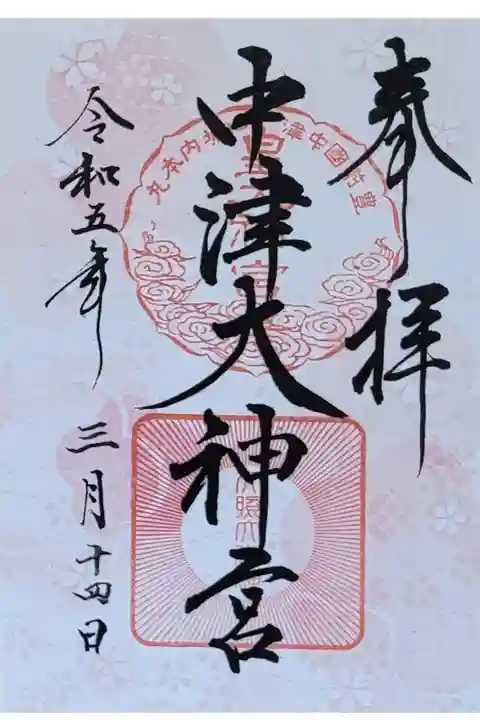 奉拝
中津大神宮
令和五年 三月十四日